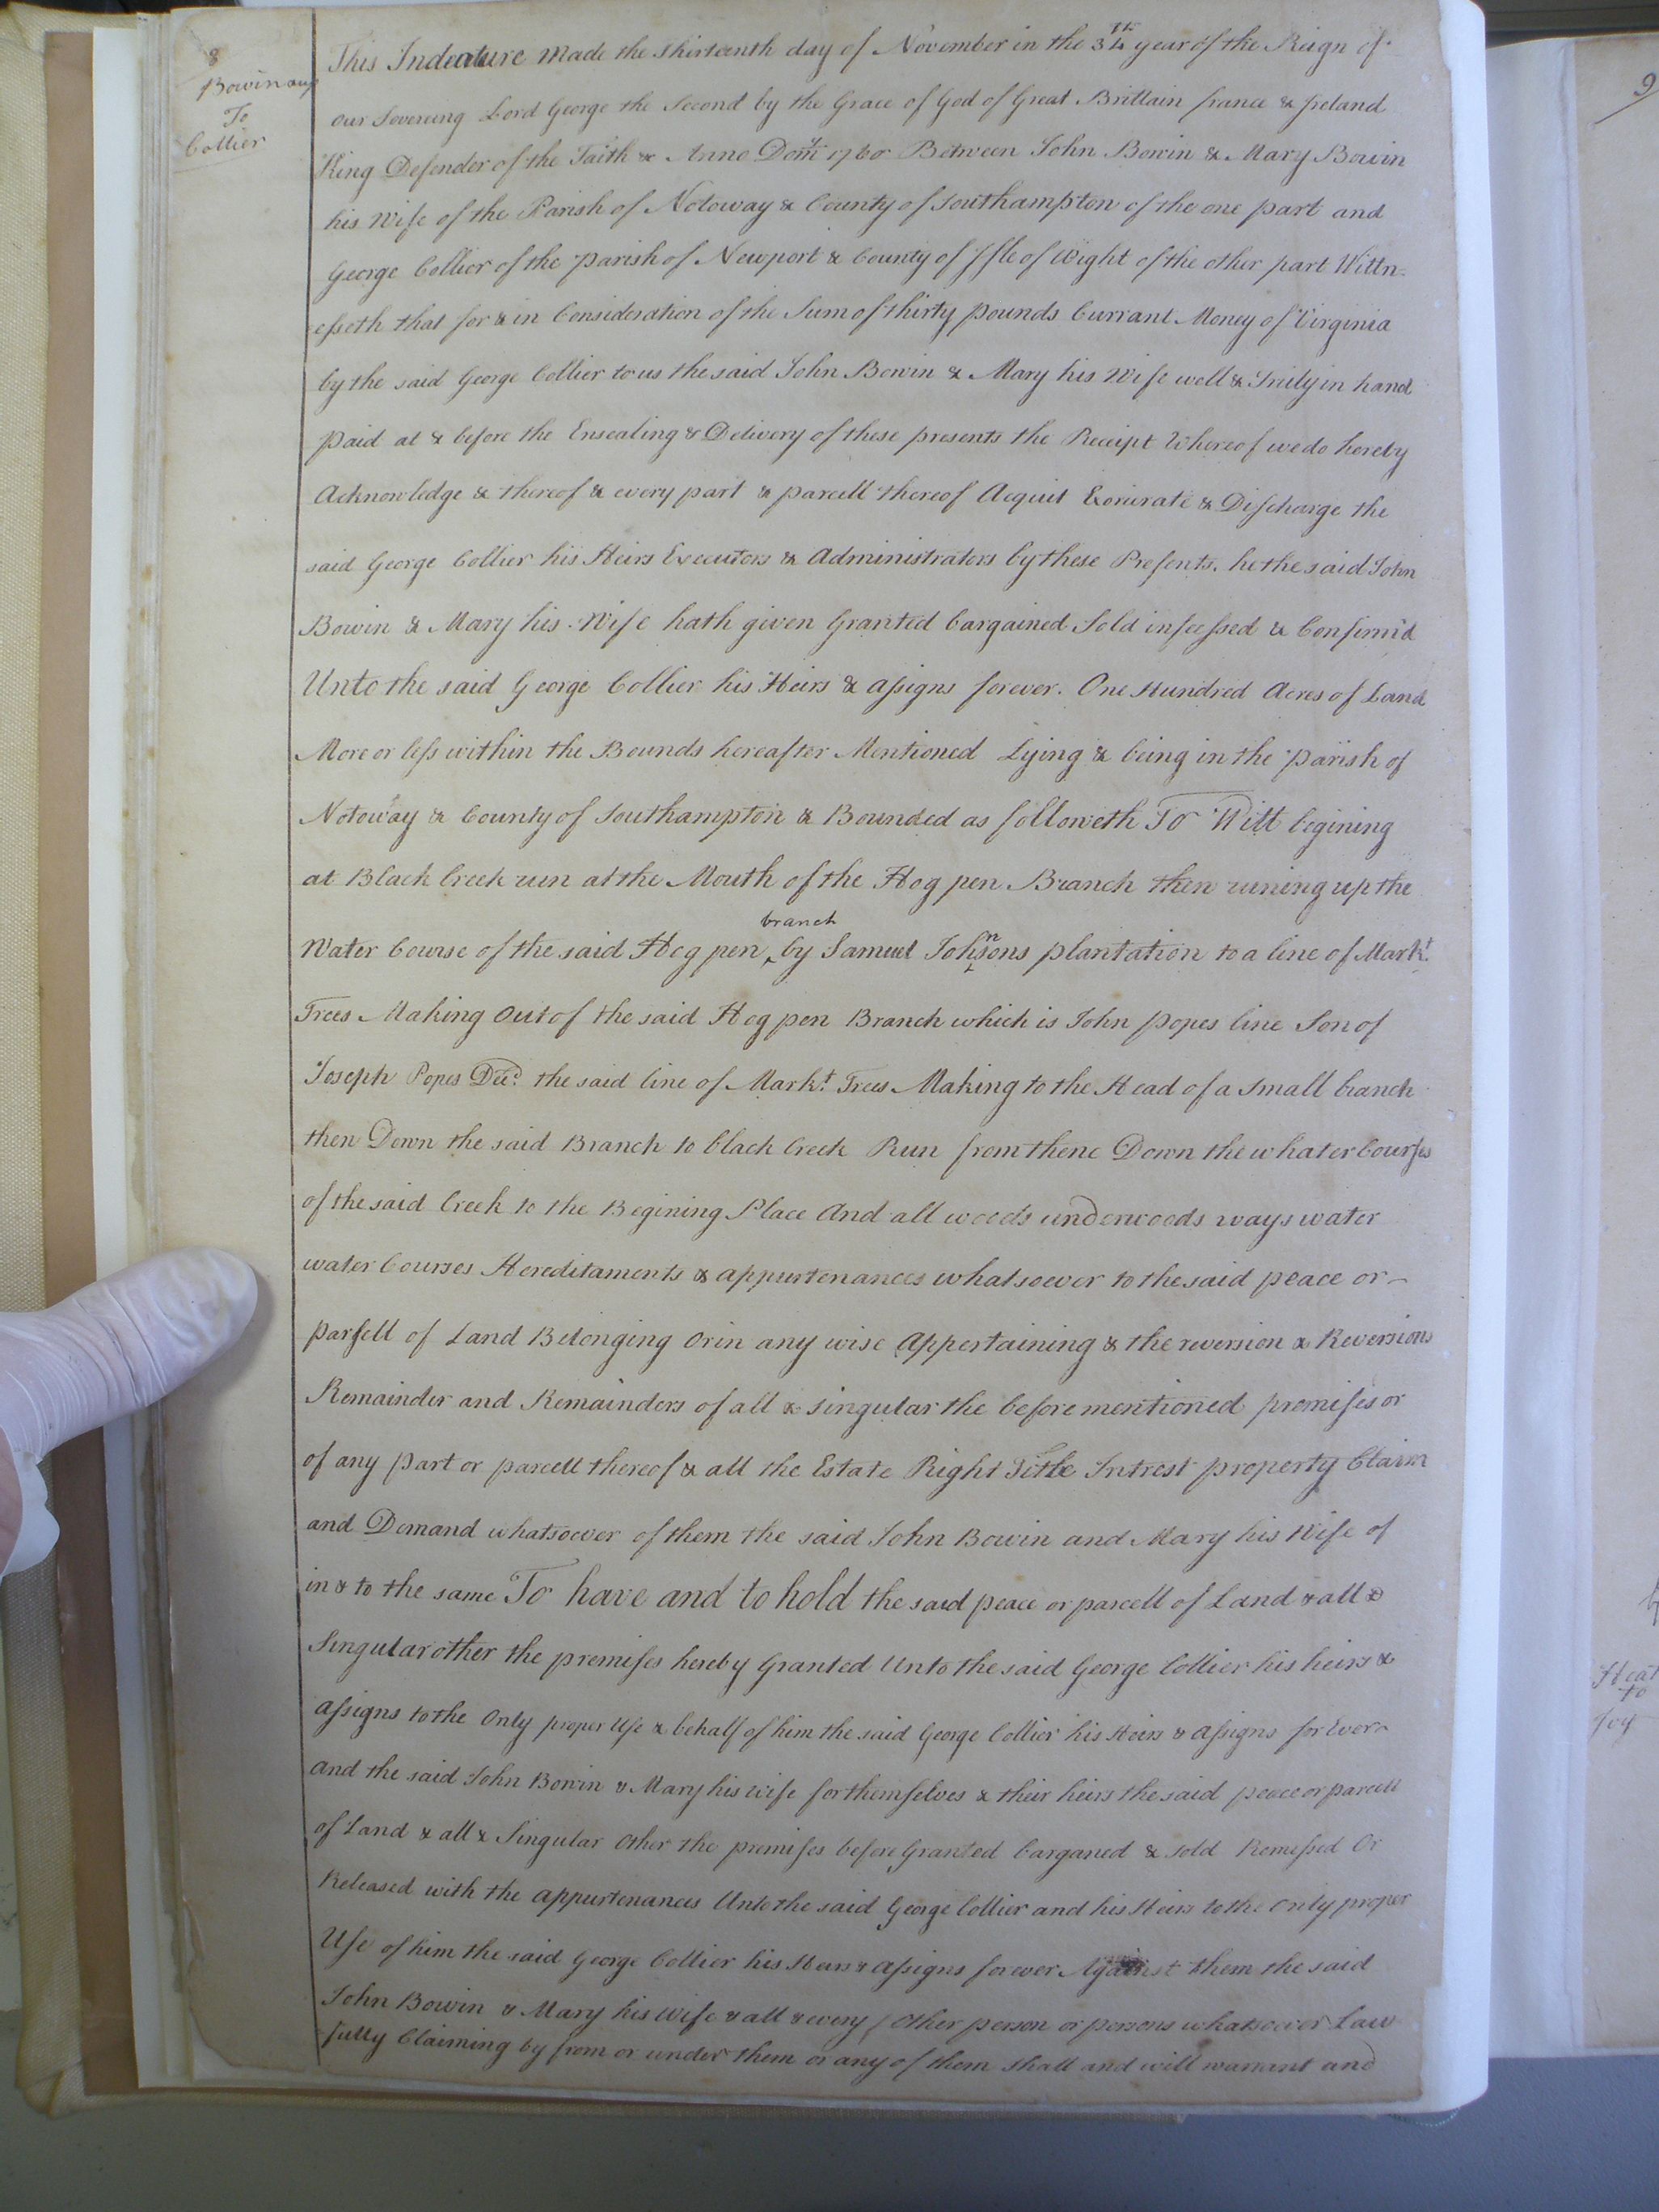 8
Bowin aux
To
Collier
This Indenture Made the thirteenth day of November in the 34th year of the Reign of
our Sovereing Lord George the Second by the Grace of God of Great Brittain france & Jreland
King Defender of the Faith & Anno Dom 1760 Between John Bowin & Mary Bowin
his Wife of the Parish of Notoway & County of Southampton of the one part and
George Collier of the parish of Newport & County of Jsle of Wight of the other part Wittn-
esseth that for & in Consideration of the Sum of thirty pounds Currant Money of Virginia
by the said George Collier to us the said John Bowin & Mary his Wife well & Truly in hand
Paid at & before the Ensealing & Delivery of these presents the Receipt Whereof we do hereby
Acknowledge & thereof & every part & parcell thereof Acquit Exonirate & Discharge the
said George Collier his Heirs Executors & Administrators by these Presents, he the said John
Bowin & Mary his Wife hath given Granted bargained Sold infeessed & Confirm'd
Unto the said George Collier his Heirs & assigns forever. One Hundred Acres of Land
More or less within the Bounds hereafter Mentioned Lying & being in the Parish of
Notoway & County of Southampton & Bounded as followeth To Witt begining
at Black Creek run at the Mouth of the Hog pen Branch then runing up the
Water Course of the said Hog pen branch by Samuel Johnsons plantation to a line of Markt
Trees Making Out of the said Hog pen Branch which is John popes line Son of
Joseph Popes Decd the said line of Markt Trees Making to the Head of a Small branch
then Down the said Branch to black Creek Run from thenc Down the whater Courses
of the said Creek to the Begining Place And all woods underwoods ways water
water Courses Hereditaments & appurtenances whatsoever to the said peace or
parsell of Land Belonging or in any wise Appertaining & the reversion & Reversions
Remainder and Remainders of all & singular the before mentioned premises or
of any part or parcell thereof & all the Estate Right Title Intrest property Claim
and Demand whatsoever of them the said John Bowin and Mary his Wife of
in & to the same To have and to hold the said peace or parcell of Land & all &
Singular other the premises hereby Granted Unto the said George Collier his heirs &
assigns to the Only proper Use & behalf of him the said George Collier his Heirs & assigns for Ever
and the said John Bowin & Mary his Wife for themselves & their heirs the said peace or parcell
of Land & all & Singular Other the premises before Granted barganed & sold Remessed Or
Released with the appurtenances Unto the said George Collier and his Heirs to the Only proper
Use of him the said George Collier his Heirs & assigns forever Against them the said
John Bowin & Mary his Wife & all & every other person or persons whatsoever Law
fully Claiming by from or under them or any of them shall and will warrant and
9
to